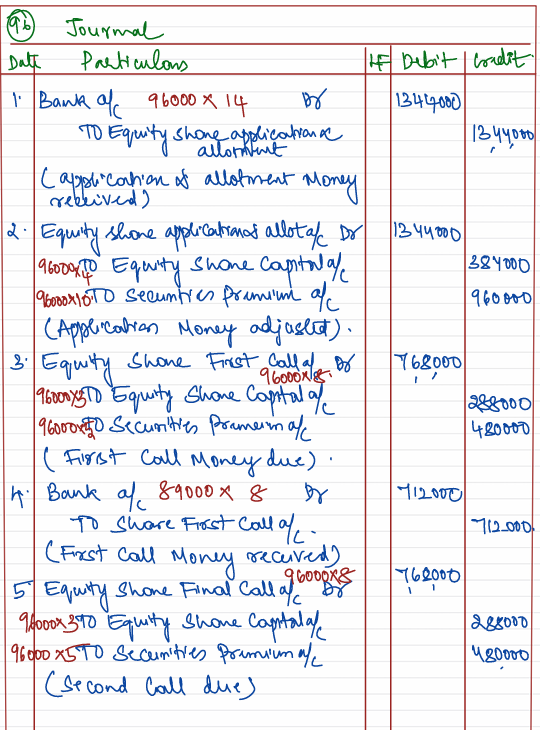 96 Journal
Date Particulars LF Debit Credit
1. Bank a/c 96000 x 14 Dr 1344000
To Equity share application & 1344000
allotment
(application & allotment Money
received)
2. Equity share application & allot a/c Dr 1344000
96000x4 To Equity Share Capital a/c 384000
96000x10 To Securities Premium a/c 960000
(Application Money adjusted).
3. Equity Share First Call a/c Dr 768000
96000x8
96000x3 To Equity Share Capital a/c 288000
96000x5 To Securities Premium a/c 480000
(First Call Money due).
4. Bank a/c 89000 x 8 Dr 712000
To Share First Call a/c. 712000.
(First Call Money received)
96000x8
5 Equity Share Final Call a/c Dr 768000
96000x3 To Equity Share Capital a/c 288000
96000 x5 To Securities Premium a/c 480000
(Second Call due)